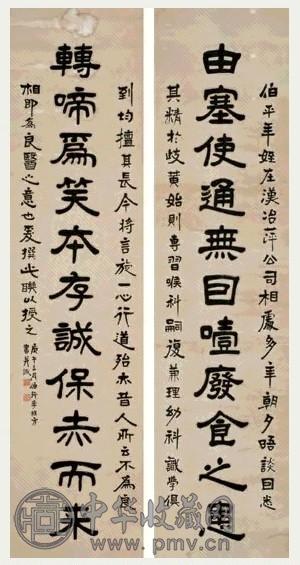 伯平年姪在漢冶萍公司相處多年朝夕晤談因悉
由塞使通無因噎廢食之患
其精於歧黃始則專習喉科嗣復兼理幼科識學俱
到均擅其長今將言旋一心行道殆亦昔人所云不為良
轉啼爲笑本存誠保赤而來
相即為良醫之意也爰撰此聯以授之
庚午三月
書并識
中华收藏网
www.pmv.cn